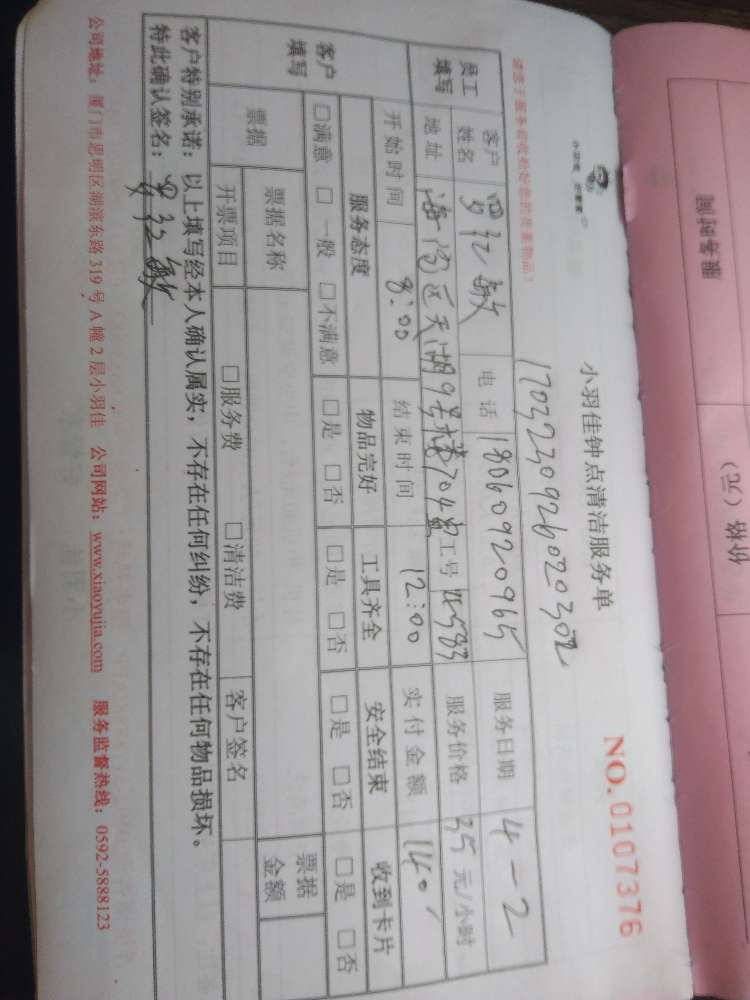 小羽佳钟点清洁服务单
NO. 0107376
1703230926020302
请您于服务前收拾好您的贵重物品！
员工填写
客户姓名 罗红敏 电话 18060920965 服务日期 4-2
地址 海沧区天湖9号楼704室 工号 服务价格 35 元/小时
开始时间 8:00 结束时间 12:00 实付金额 140
客户填写
服务态度 物品完好 工具齐全 安全结束 收到卡片
□满意 □一般 □不满意 □是 □否 □是 □否 □是 □否 □是 □否
票据 票据名称 票据金额
开票项目 □服务费 □清洁费 客户签名
客户特别承诺：以上填写经本人确认属实，不存在任何纠纷，不存在任何物品损坏。
特此确认签名：罗红敏
公司地址：厦门市思明区湖滨东路 319 号 A 幢 2 层小羽佳 公司网站：www.xiaoyujia.com 服务监督热线：0592-5888123
服务时间
价格（元）